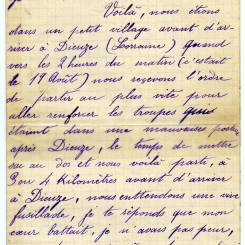 Voilà, nous étions
dans un petit village avant d'ar-
river à Dieuze (Lorraine) quand
vers les 2 heures du matin (c'était
le 19 Août) nous reçevons l'ordre
de partir au plus vite pour
aller renforcer les troupes qui
étaient dans une mauvaise
après Dieuze, le temps de mettre
sac au dos et nous voilà parti, à
3 ou 4 Kilomètres avant d'arriver
à Dieuze, nous enttendons une vive
fusillade, je te réponds que mon
cœur battait, je n'avais pas peur,